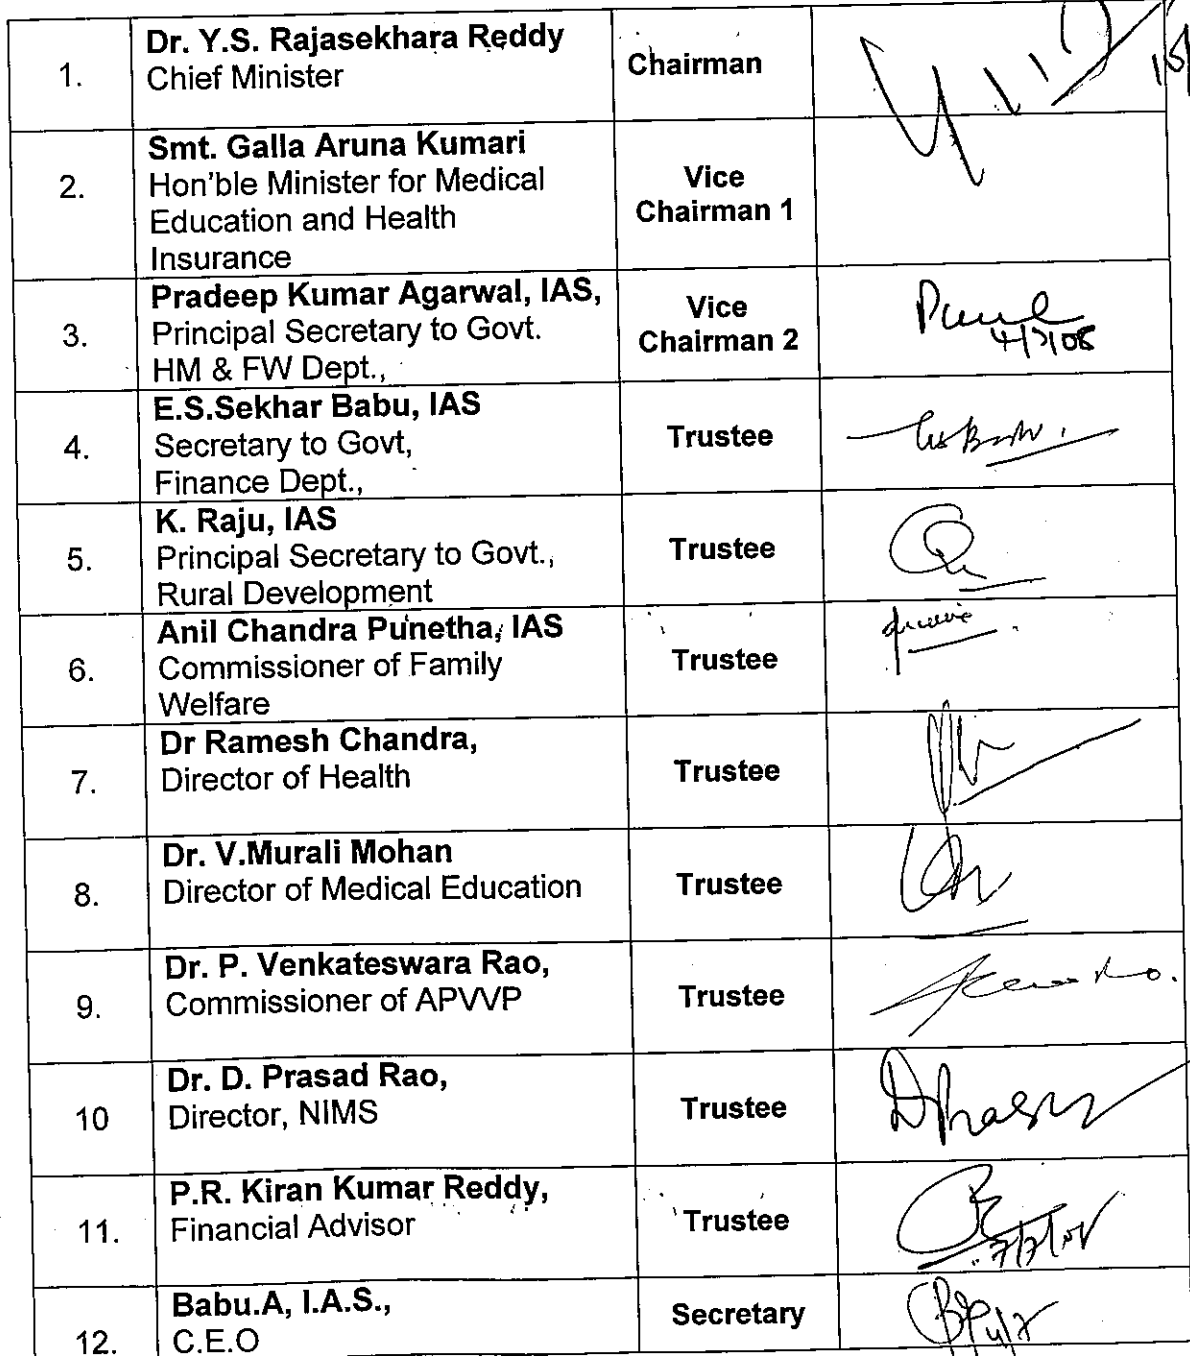 1.
Dr. Y.S. Rajasekhara Reddy
Chief Minister
Chairman
2.
Smt. Galla Aruna Kumari
Hon'ble Minister for Medical
Education and Health
Insurance
Vice
Chairman 1
3.
Pradeep Kumar Agarwal, IAS,
Principal Secretary to Govt.
HM & FW Dept.,
Vice
Chairman 2
4/7/08
4.
E.S.Sekhar Babu, IAS
Secretary to Govt,
Finance Dept.,
Trustee
5.
K. Raju, IAS
Principal Secretary to Govt.,
Rural Development
Trustee
6.
Anil Chandra Punetha, IAS
Commissioner of Family
Welfare
Trustee
7.
Dr Ramesh Chandra,
Director of Health
Trustee
8.
Dr. V.Murali Mohan
Director of Medical Education
Trustee
9.
Dr. P. Venkateswara Rao,
Commissioner of APVVP
Trustee
10
Dr. D. Prasad Rao,
Director, NIMS
Trustee
11.
P.R. Kiran Kumar Reddy,
Financial Advisor
Trustee
7/7/08
12.
Babu.A, I.A.S.,
C.E.O
Secretary
4/7